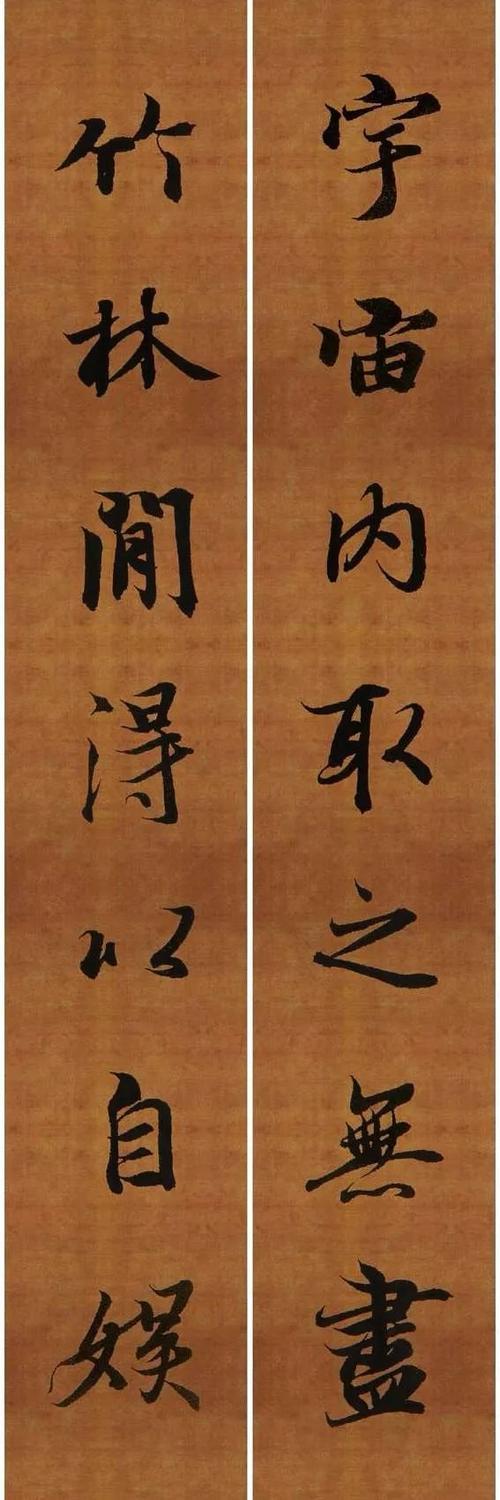 宇宙内取之無盡
竹林閒得以自娱